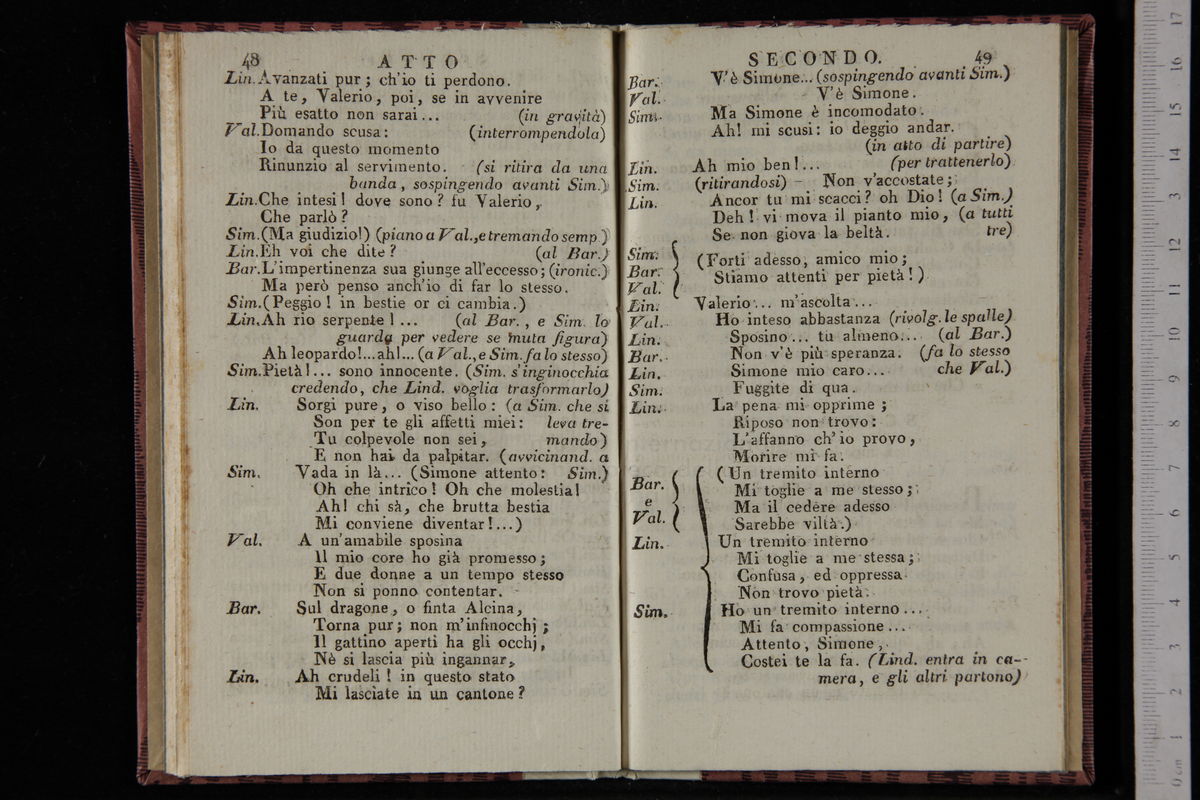 48 ATTO
Lin. Avanzati pur; ch'io ti perdono.
A te, Valerio, poi, se in avvenire
Più esatto non sarai... (in gravità)
Val. Domando scusa: (interrompendola)
Io da questo momento
Rinunzio al servimento. (si ritira da una
banda, sospingendo avanti Sim.)
Lin. Che intesi! dove sono? fu Valerio,
Che parlò?
Sim. (Ma giudizio!) (piano a Val., e tremando semp.)
Lin. Eh voi che dite? (al Bar.)
Bar. L'impertinenza sua giunge all'eccesso; (ironic.)
Ma però penso anch'io di far lo stesso.
Sim. (Peggio! in bestie or ci cambia.)
Lin. Ah rio serpente!... (al Bar., e Sim. lo
guarda per vedere se muta figura)
Ah leopardo!...ah!... (a Val., e Sim. fa lo stesso)
Sim. Pietà!... sono innocente. (Sim. s'inginocchia
credendo, che Lind. voglia trasformarlo)
Lin. Sorgi pure, o viso bello: (a Sim. che si
Son per te gli affetti miei: leva tre-
Tu colpevole non sei, mando)
E non hai da palpitar. (avvicinand. a
Sim. Vada in là... (Simone attento: Sim.)
Oh che intrico! Oh che molestia!
Ah! chi sà, che brutta bestia
Mi conviene diventar!...)
Val. A un'amabile sposina
Il mio core ho già promesso;
E due donne a un tempo stesso
Non si ponno contentar.
Bar. Sul dragone, o finta Alcina,
Torna pur; non m'infinocchj;
Il gattino aperti ha gli occhj,
Nè si lascia più ingannar.
Lin. Ah crudeli! in questo stato
Mi lasciate in un cantone?
SECONDO. 49
Bar. V'è Simone... (sospingendo avanti Sim.)
Val. V'è Simone.
Sim. Ma Simone è incomodato.
Ah! mi scusi: io deggio andar.
(in atto di partire)
Lin. Ah mio ben!... (per trattenerlo)
Sim. (ritirandosi) - Non v'accostate;
Lin. Ancor tu mi scacci? oh Dio! (a Sim.)
Deh! vi mova il pianto mio, (a tutti
Se non giova la beltà. tre)
Sim. Bar. Val. (Forti adesso, amico mio;
Stiamo attenti per pietà!)
Lin. Valerio... m'ascolta...
Val. Ho inteso abbastanza (rivolg. le spalle)
Lin. Sposino... tu almeno... (al Bar.)
Bar. Non v'è più speranza. (fa lo stesso
Lin. Simone mio caro... che Val.)
Sim. Fuggite di qua.
Lin. La pena mi opprime;
Riposo non trovo:
L'affanno ch'io provo,
Morire mi fa.
Bar. e Val. (Un tremito interno
Mi toglie a me stesso;
Ma il cedere adesso
Sarebbe viltà.)
Lin. Un tremito interno
Mi toglie a me stessa;
Confusa, ed oppressa
Non trovo pietà.
Sim. Ho un tremito interno...
Mi fa compassione...
Attento, Simone,
Costei te la fa. (Lind. entra in ca-
mera, e gli altri partono)
0 cm 1 2 3 4 5 6 7 8 9 10 11 12 13 14 15 16 17